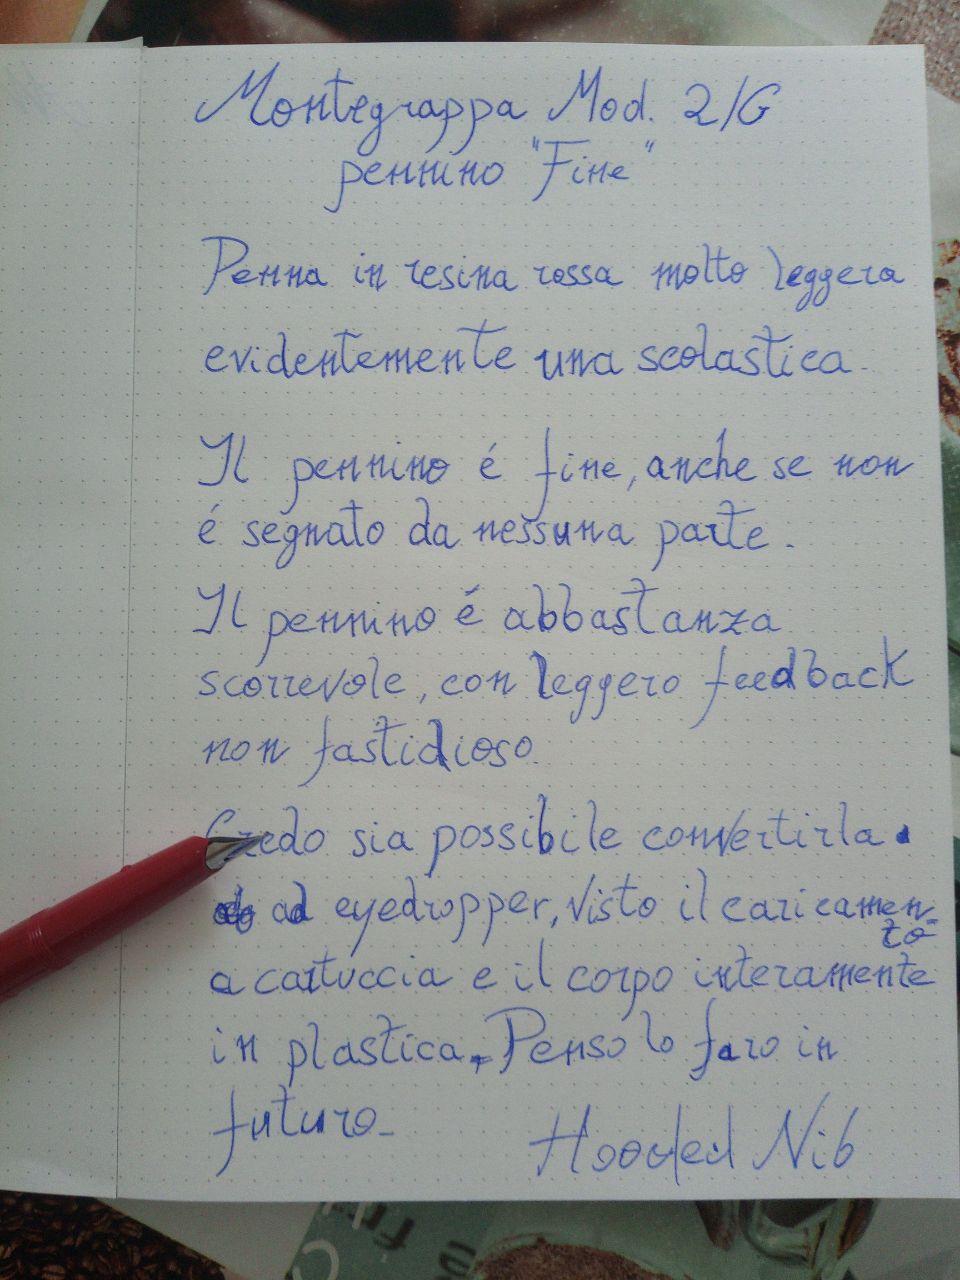 Montegrappa Mod. 2/G
pennino "Fine"
Penna in resina rossa molto leggera
evidentemente una scolastica.
Il pennino é fine, anche se non
é segnato da nessuna parte.
Il pennino é abbastanza
scorrevole, con leggero feedback
non fastidioso.
Credo sia possibile convertirla
ad eyedropper, visto il caricamen-
to
a cartuccia e il corpo interamente
in plastica. Penso lo faro in
futuro.
Hooded Nib